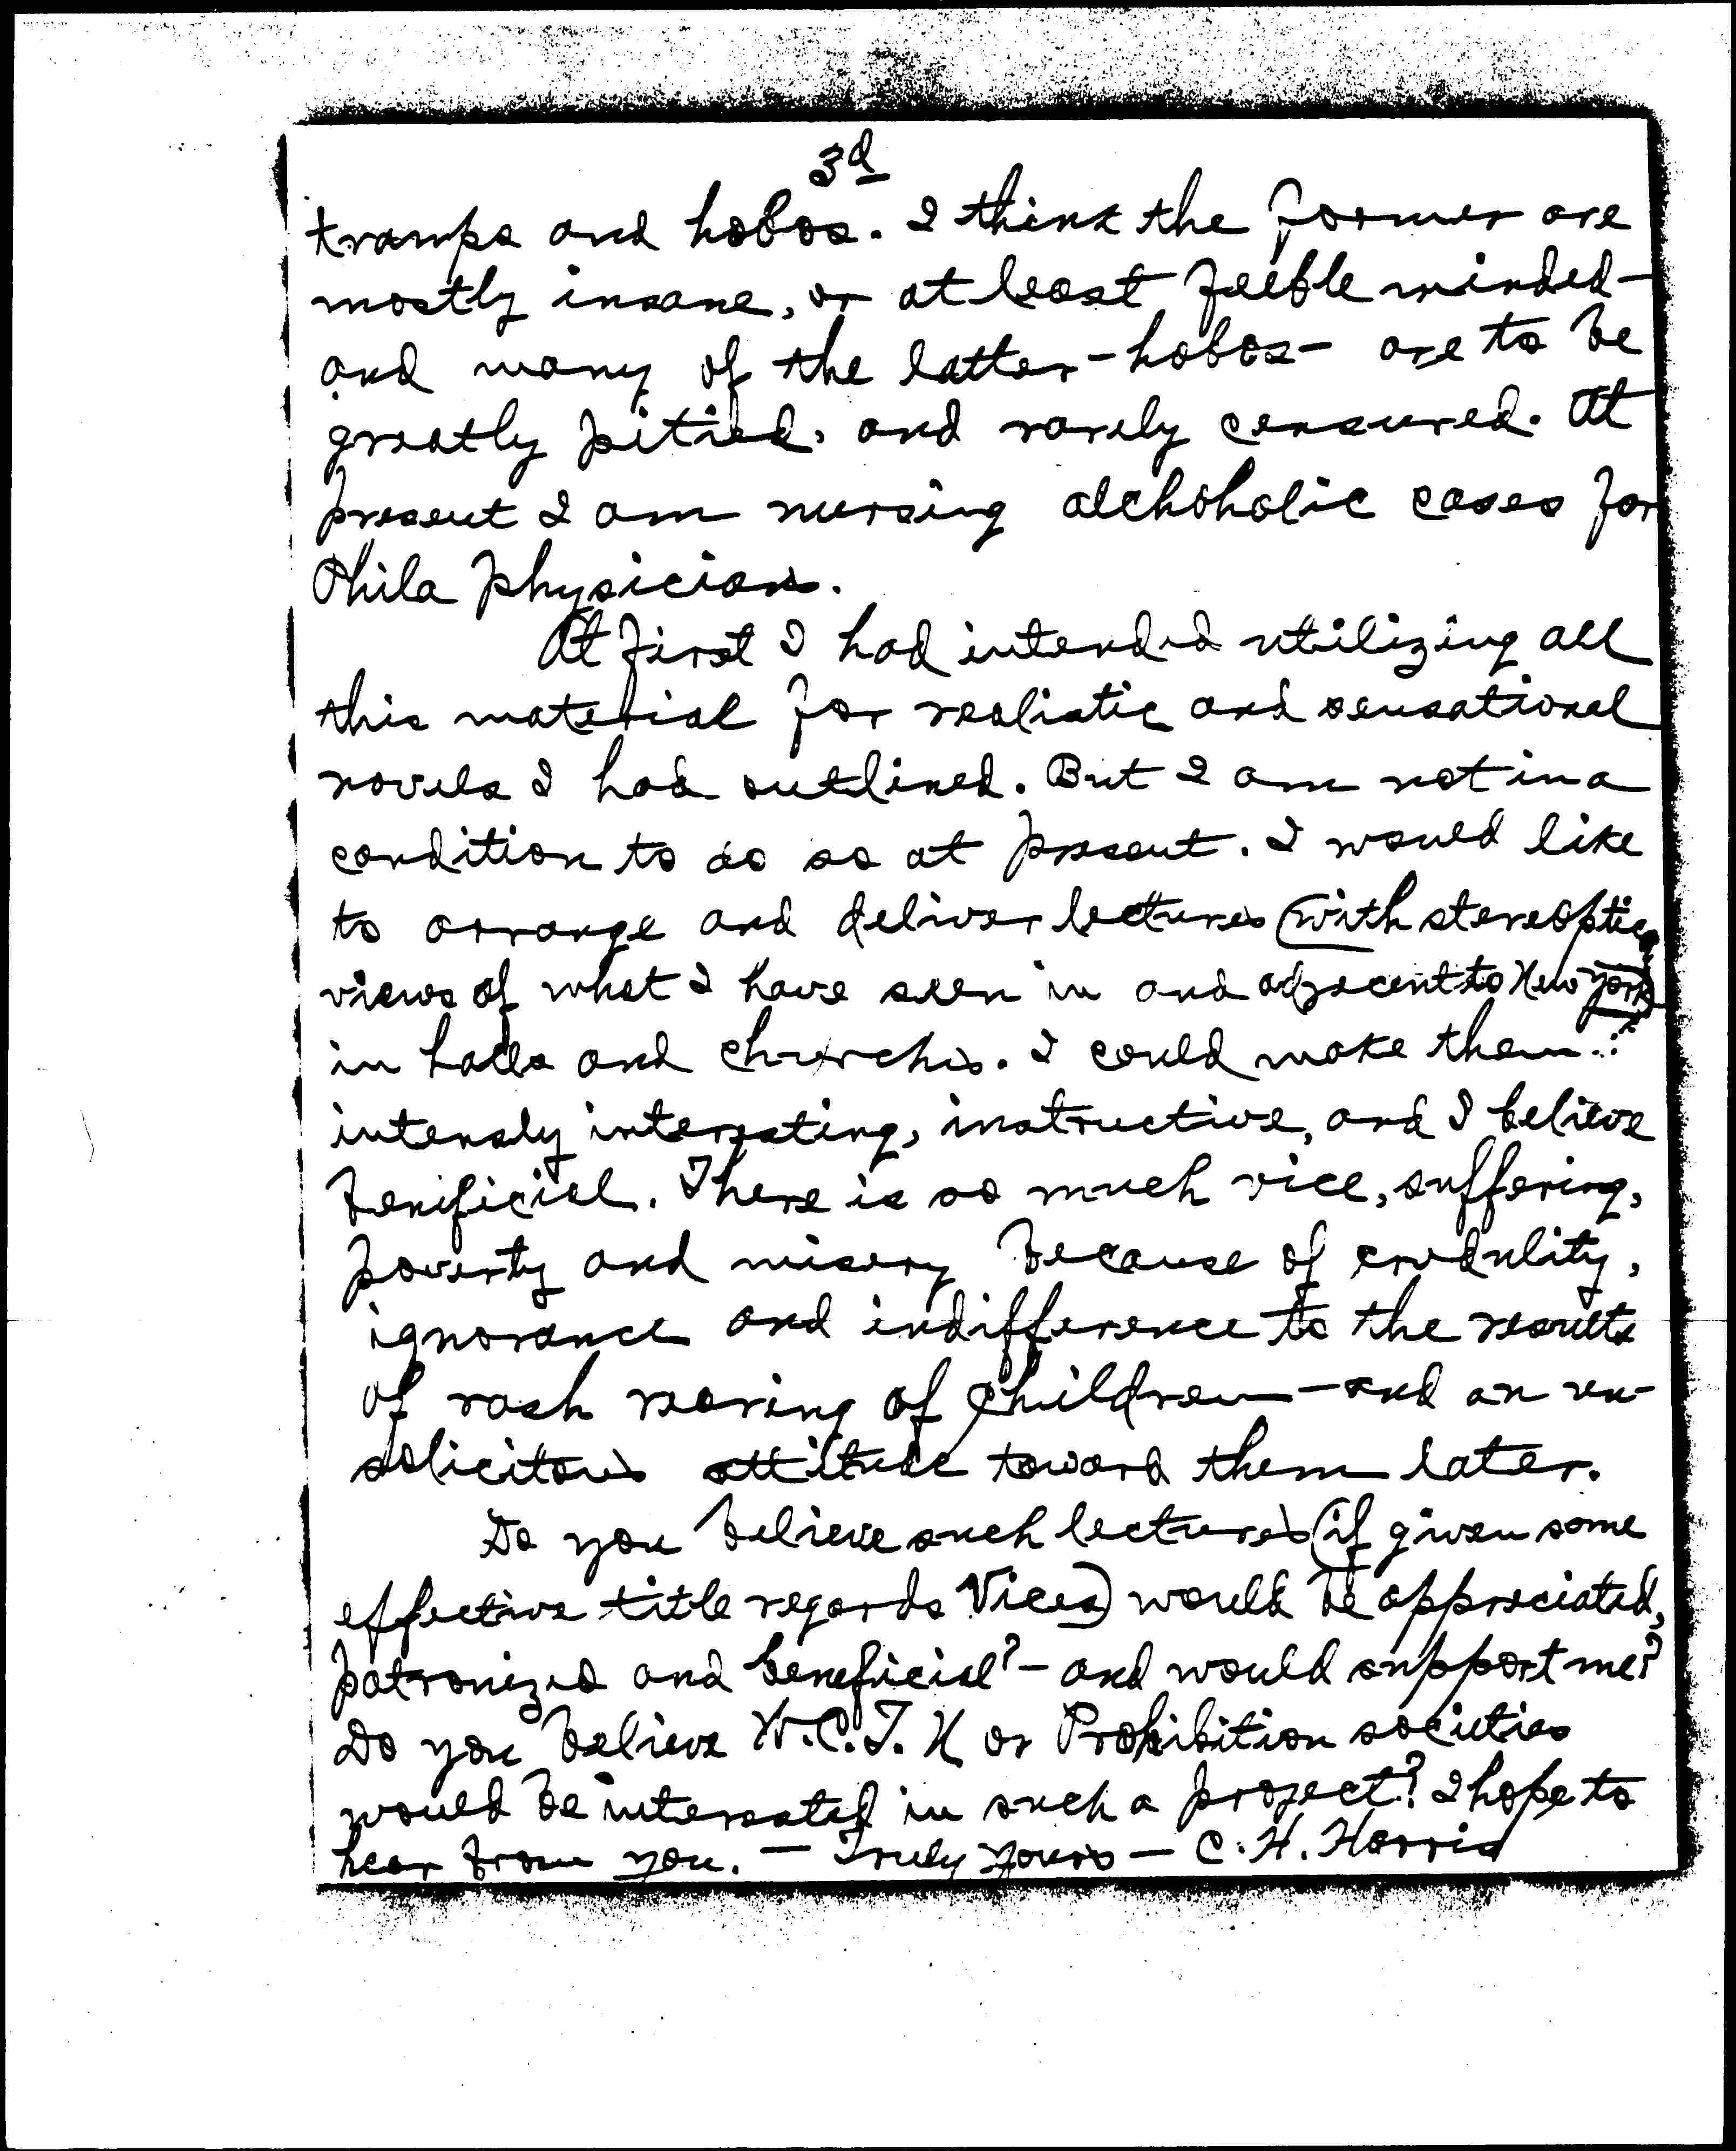 3d
tramps and hobos. I think the former are
mostly insane, or at least feeble minded-
and many of the latter - hobos - are to be
greatly pitied, and rarely censured. At
present I am nursing alchoholic cases for
Phila physicians.
At first I had intended utilizing all
this material for realistic and sensational
novels I had outlined. But I am not in a
condition to do so at present. I would like
to arrange and deliver lectures (with stereoptican
views of what I have seen in and adjacent to New York)
in halls and churches. I could make them
intensly interesting, instructive, and I believe
benificial. There is so much vice, suffering,
poverty and misery because of credulity,
ignorance and indifference to the results
of rash rearing of children - and an un-
solicitous attitude toward them later.
Do you believe such lectures (if given some
effective title regards Vices) would be appreciated,
patronized and beneficial? - and would support me?
Do you believe W.C.T.U or Prohibition societies
would be interested in such a project? I hope to
hear from you. - Truly yours - C. H. Harris